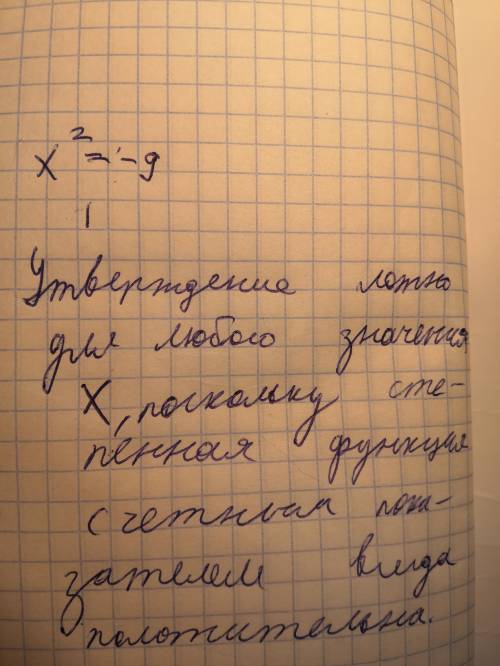 x² = -9
1
Утверждение ложно
для любого значения
X, поскольку сте-
пенная функция
с четным пока-
зателем всегда
положительна.